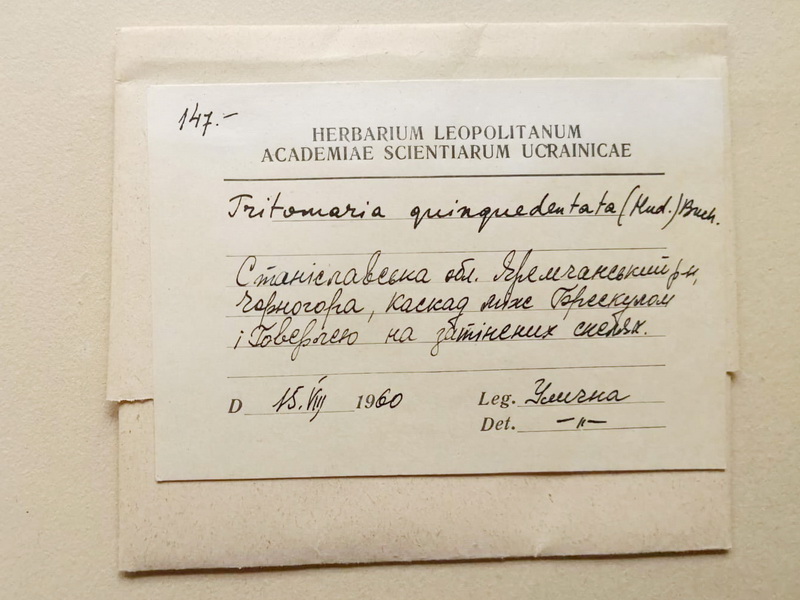 147.-
HERBARIUM LEOPOLITANUM
ACADEMIAE SCIENTIARUM UCRAINICAE
Tritomaria quinquedentata (Hud.) Buch.
Станіславська обл. Яремчанський р-н,
Чорногора, каскад між Брескулом
і Говерлею на затінених скелях.
D 15.VIII 1960 Leg. Улична
Det. -"-